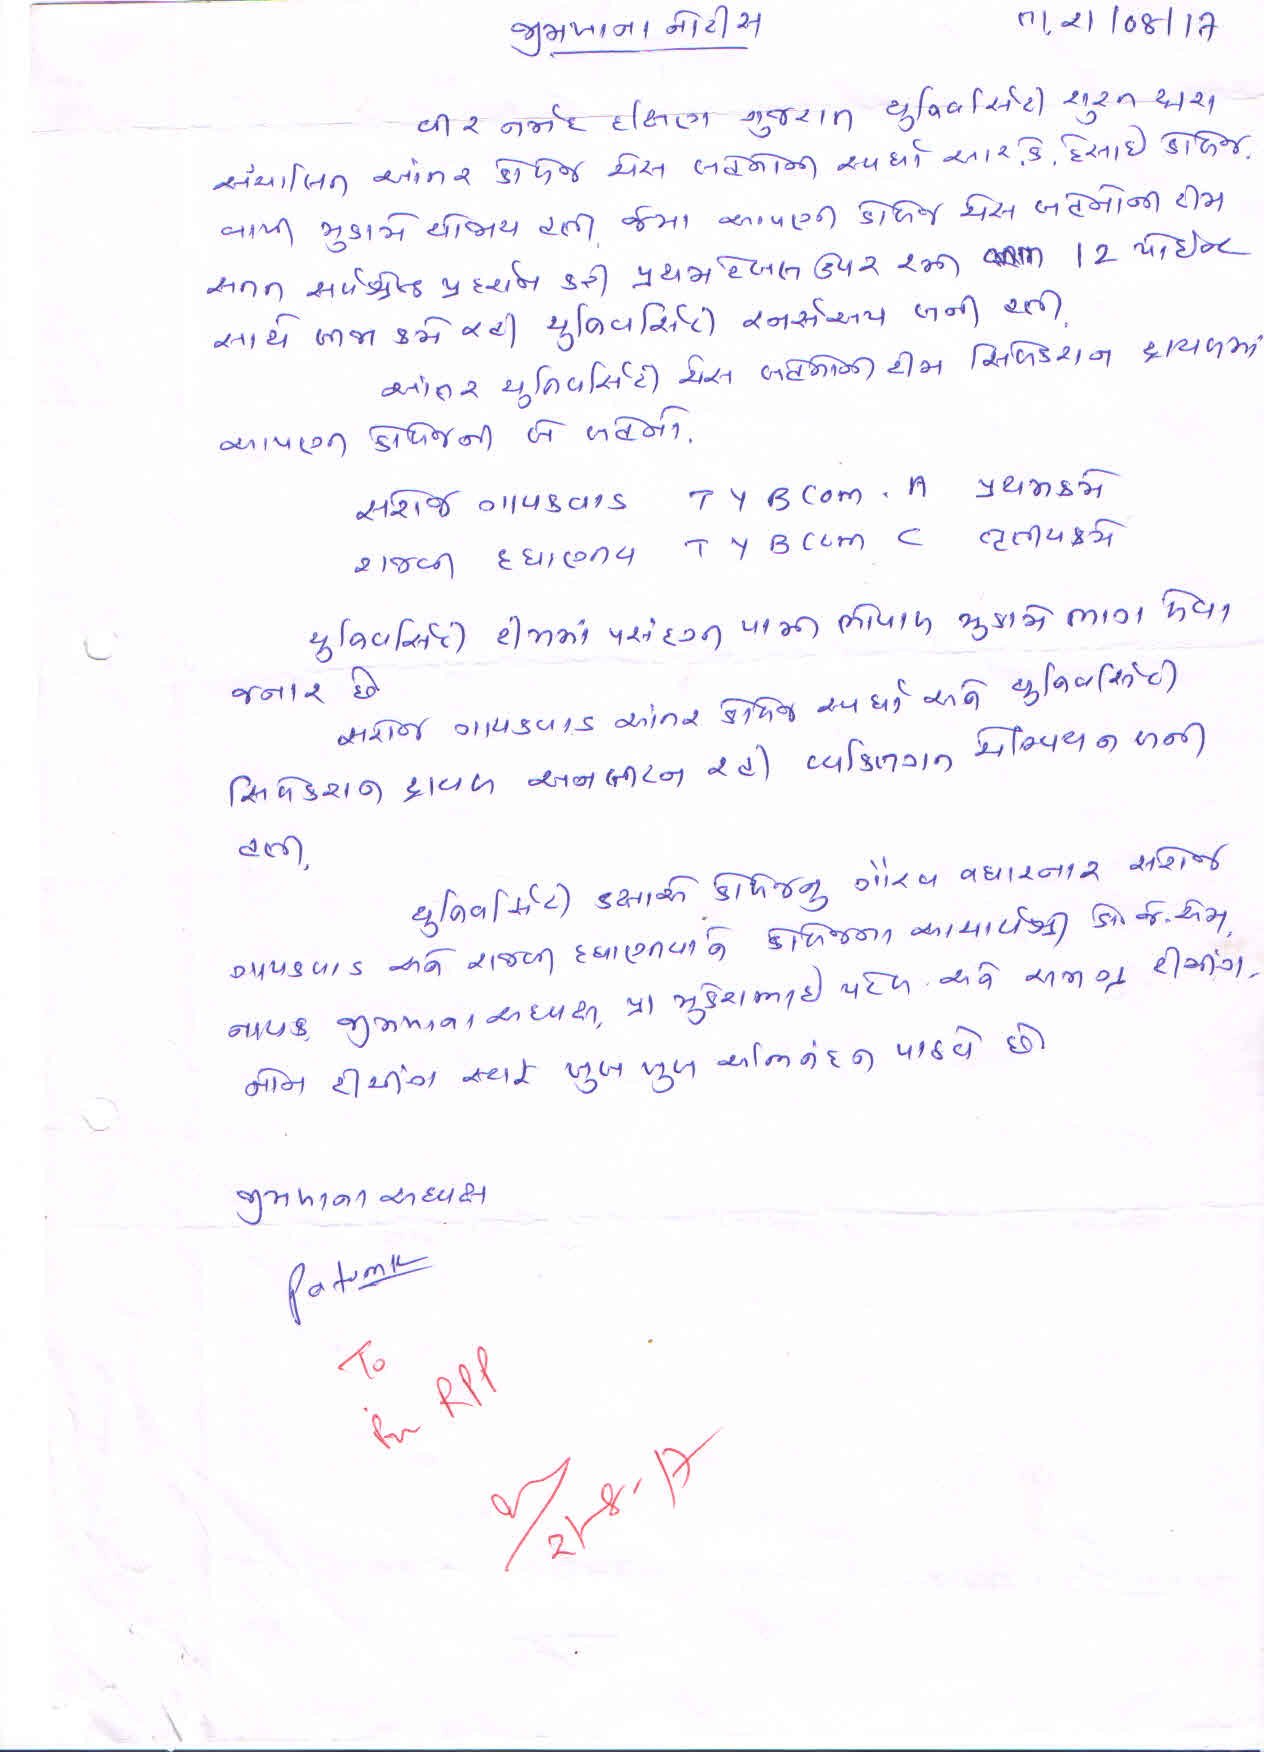 જીમખાના નોટીસ
તા. ૨૧/08/17
વીર નર્મદ દક્ષિણ ગુજરાત યુનિવર્સિટી સુરત દ્વારા
સંચાલિત આંતર કોલેજ ચેસ બહેનોની સ્પર્ધા આર. કે. દેસાઈ કોલેજ.
વાપી મુકામે યોજાય હતી. જેમા આપણી કોલેજ ચેસ બહેનોની ટીમ
સતત સર્વશ્રેષ્ઠ પ્રદર્શન કરી પ્રથમ ટેબલ ઉપર રમી 12 પોઈન્ટ
સાથે બીજા ક્રમે રહી યુનિવર્સિટી રનર્સઅપ બની હતી.
આંતર યુનિવર્સિટી ચેસ બહેનોની ટીમ સિલેકશન ટ્રાયલમાં
આપણી કોલેજની બે બહેનો.
સરોજ ગાયકવાડ T Y B Com. A પ્રથમક્રમે
રાજવી દુધાણીય T Y B Com C તૃતીયક્રમે
યુનિવર્સિટી ટીમમાં પસંદગી પામી ભોપાળ મુકામે ભાગ લેવા
જનાર છે
સરોજ ગાયકવાડ આંતર કોલેજ સ્પર્ધા અને યુનિવર્સિટી
સિલેકશન ટ્રાયલ અનબીટન રહી વ્યક્તિગત ચેમ્પિયન બની
હતી.
યુનિવર્સિટી કક્ષાએ કોલેજનુ ગૌરવ વધારનાર સરોજ
ગાયકવાડ અને રાજવી દુધાણીયાને કોલેજના આચાર્યશ્રી ડો. જે. એમ.
નાયક, જીમખાના અધ્યક્ષ, પ્રા મુકેશભાઈ પટેલ અને સમગ્ર ટીચીંગ.
નોન ટીચીંગ સ્ટાફ ખુબ ખુબ અભિનંદન પાઠવે છે
જીમખાના અધ્યક્ષ
To
RPP
21-8-17